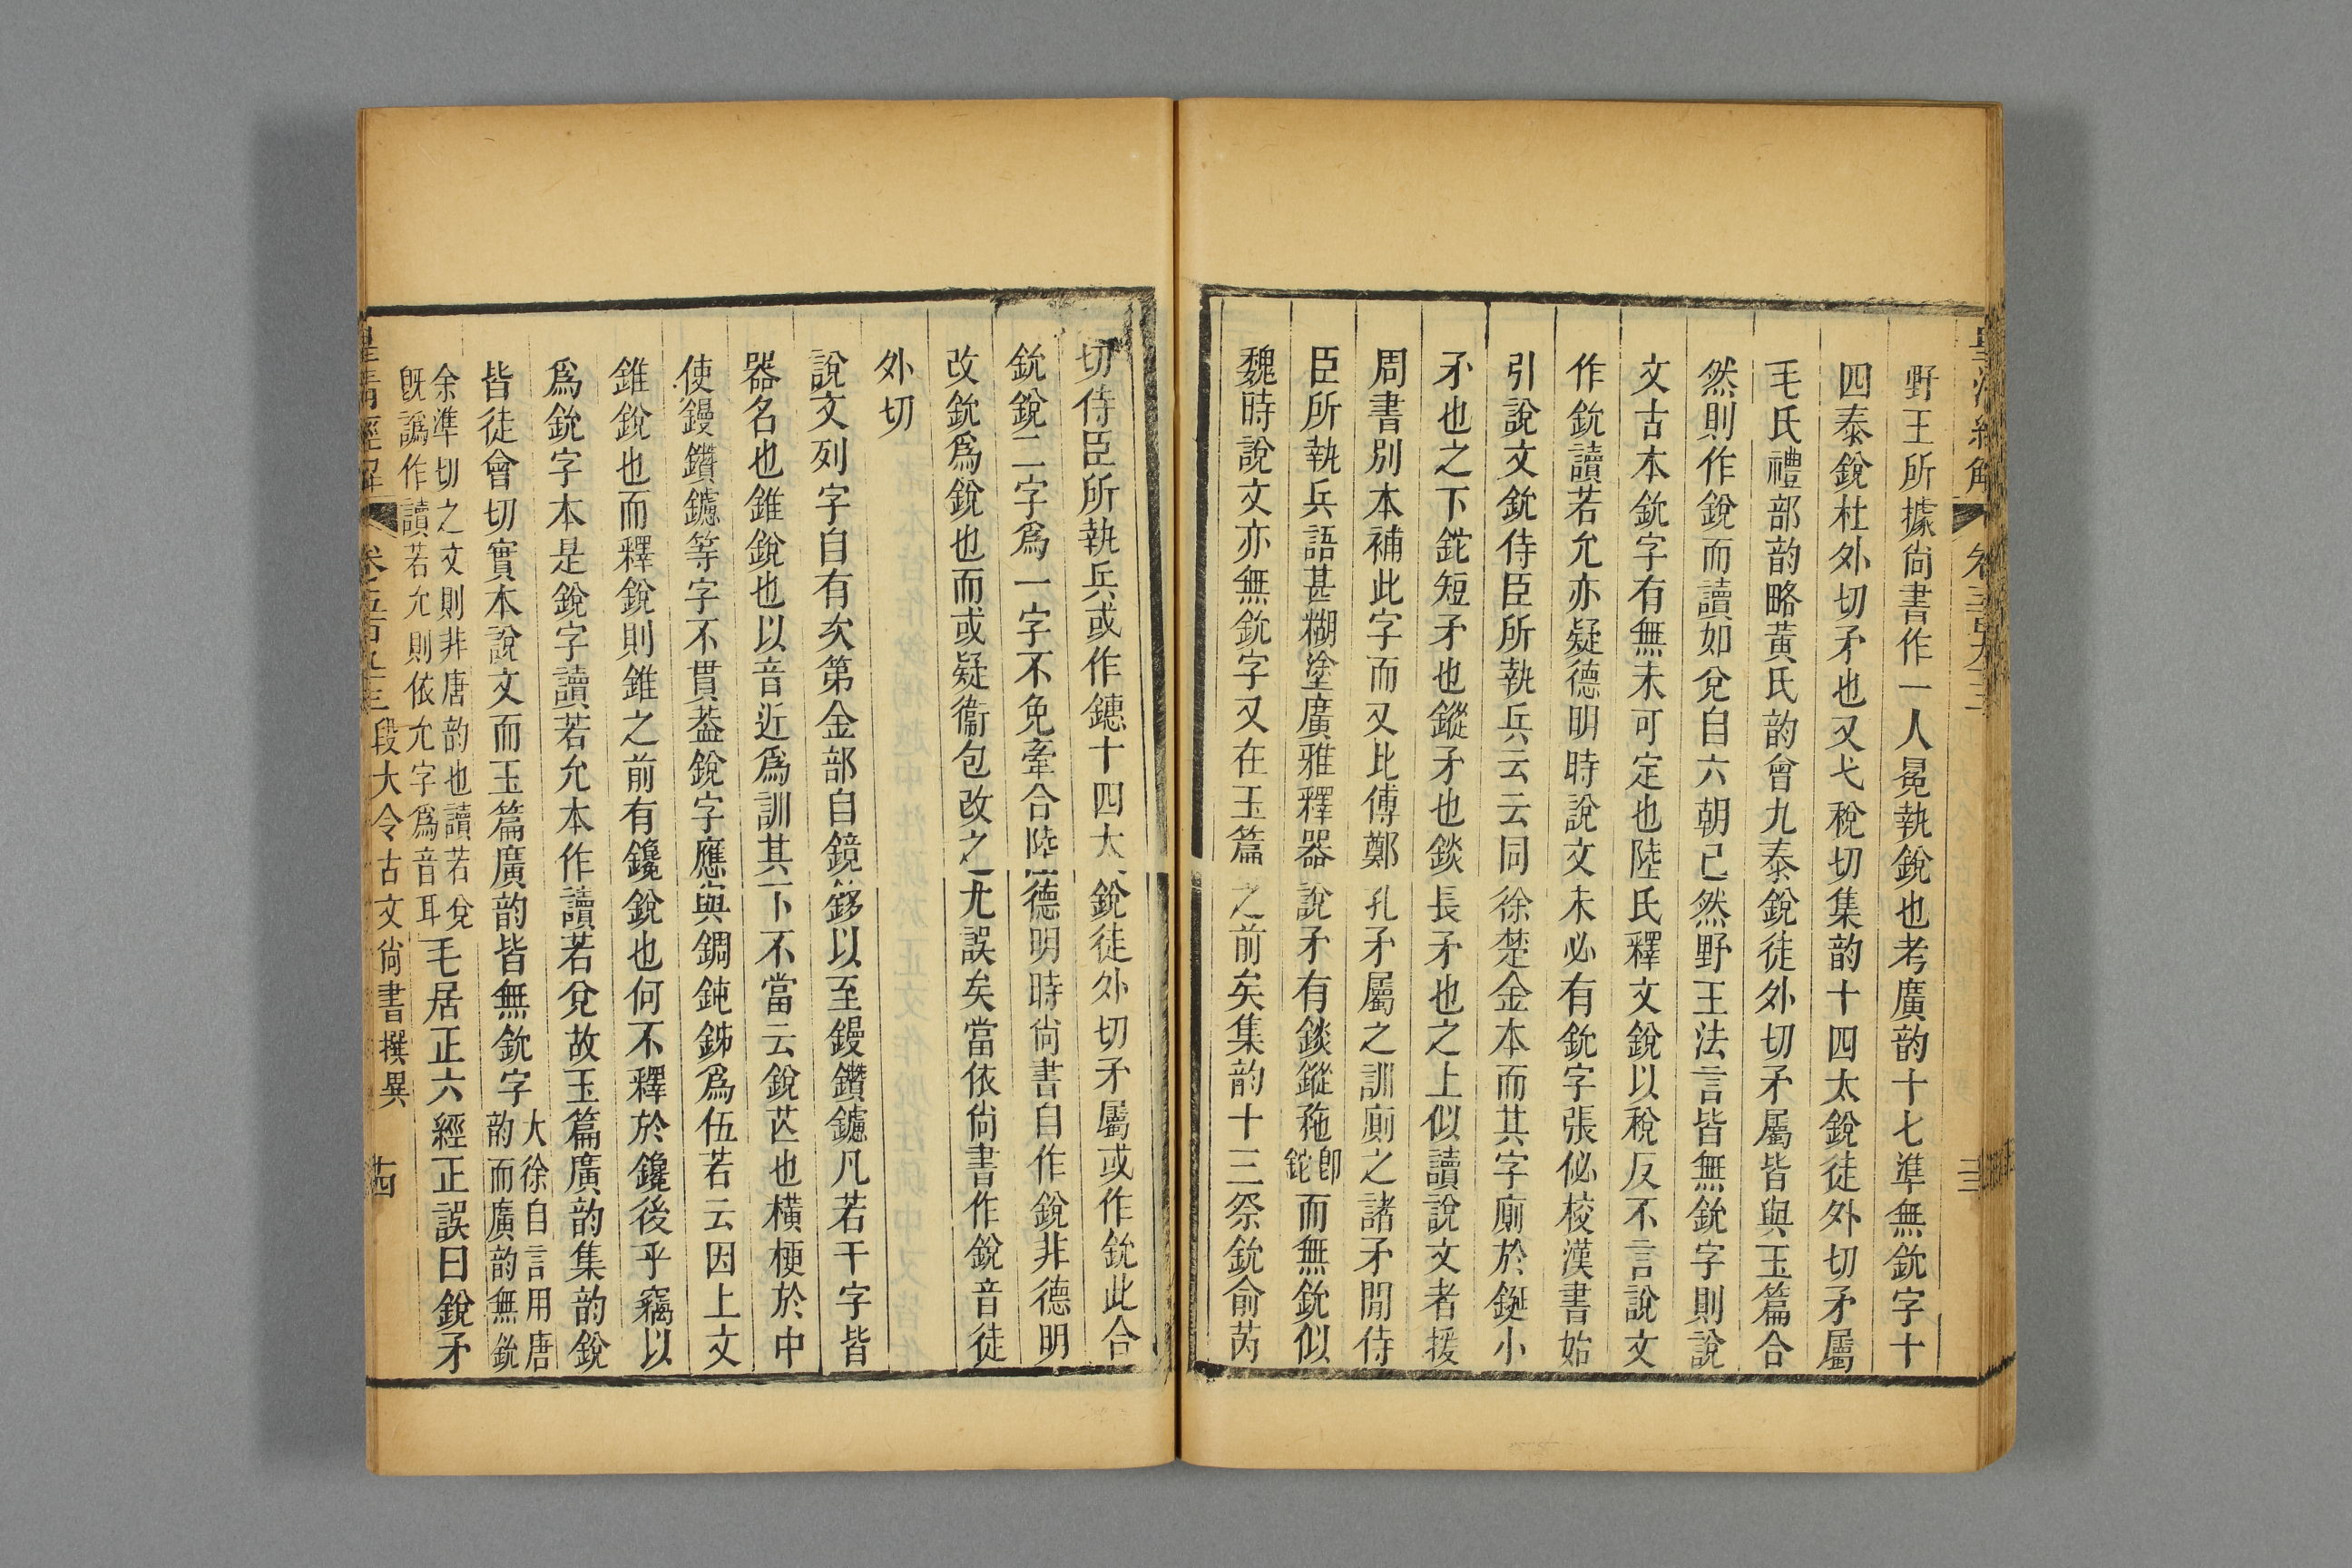 野王所據尙書作一人冕執銳也考廣韵十七準無鈗字十
四泰銳杜外切矛也又弋稅切集韵十四太銳徒外切矛屬
毛氏禮部韵略黃氏韵會九泰銳徒外切矛屬皆與玉篇合
然則作銳而讀如兌自六朝已然野王法言皆無鈗字則說
文古本鈗字有無未可定也陸氏釋文銳以稅反不言說文
作鈗讀若允亦疑德明時說文未必有鈗字張佖校漢書始
引說文鈗侍臣所執兵云云同徐楚金本而其字廁於鋋小
矛也之下鉈短矛也鏦矛也錟長矛也之上似讀說文者援
周書別本補此字而又比傅鄭孔矛屬之訓廁之諸矛閒侍
臣所執兵語甚糊塗廣雅釋器說矛有錟鏦𥍢卽鉈而無鈗似
魏時說文亦無鈗字又在玉篇之前矣集韵十三祭鈗俞芮
切侍臣所執兵或作鏸十四太銳徒外切矛屬或作鈗此合
鈗銳二字爲一字不免牽合陸德明時尙書自作銳非德明
改鈗爲銳也而或疑衞包改之尤誤矣當依尙書作銳音徒
外切
說文列字自有次第金部自鏡鉹以至鏝鑽鑢凡若干字皆
器名也錐銳也以音近爲訓其下不當云銳芒也橫梗於中
使鏝鑽鑢等字不貫葢銳字應與錭鈍銻爲伍若云因上文
錐銳也而釋銳則錐之前有鑱銳也何不釋於鑱後乎竊以
爲鈗字本是銳字讀若允本作讀若兌故玉篇廣韵集韵銳
皆徒會切實本說文而玉篇廣韵皆無鈗字大徐自言用唐
韵而廣韵無鈗
余準切之文則非唐韵也讀若兌
旣譌作讀若允則依允字爲音耳毛居正六經正誤曰銳矛
皇淸經解 卷五百九十三 段大令古文尙書撰異 十四